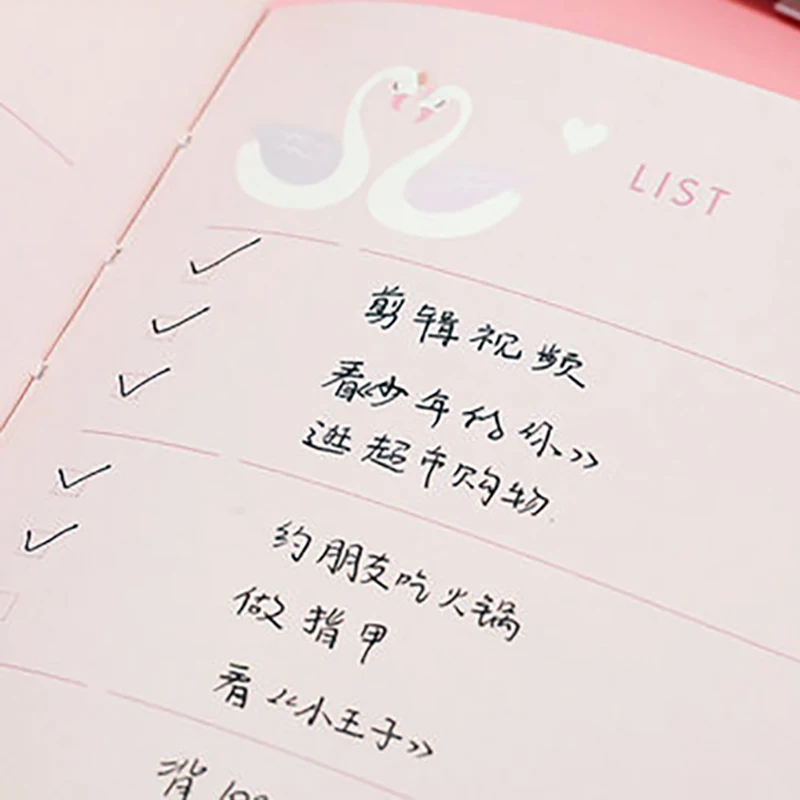 LIST
剪辑视频
看《少年的你》
逛超市购物
约朋友吃火锅
做指甲
看《小王子》
背100